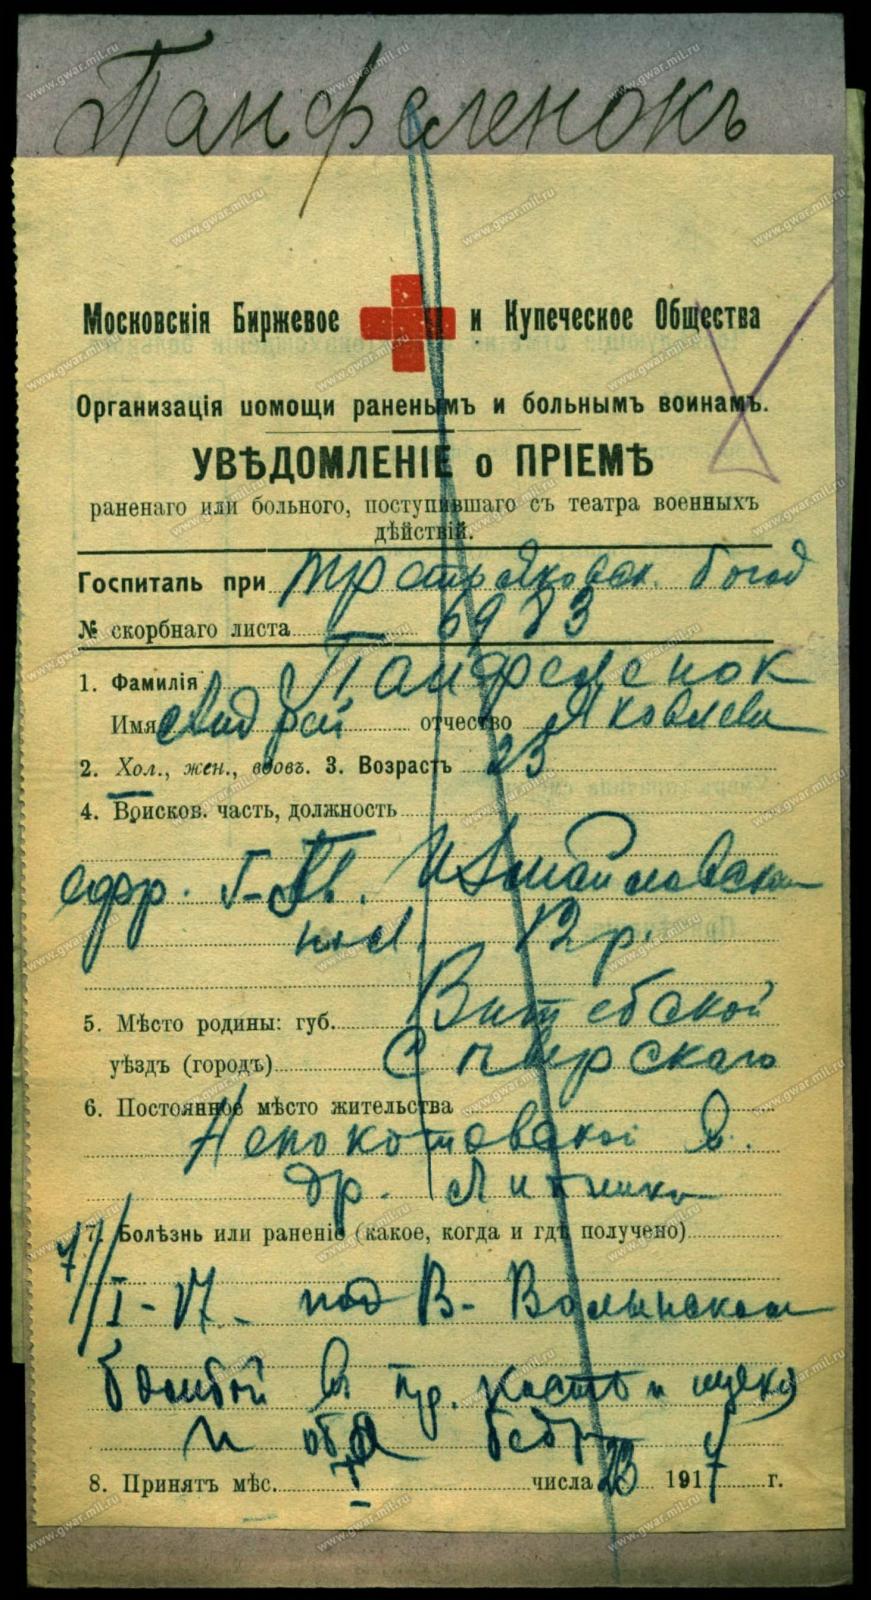 Панфеленокъ
Московскія Биржевое и Купеческое Общества
Организація помощи раненымъ и больнымъ воинамъ.
УВѢДОМЛЕНІЕ о ПРІЕМѢ
раненаго или больного, поступившаго съ театра военныхъ
дѣйствій.
Госпиталь при Третьяковск. богад
№ скорбнаго листа 6983
1. Фамилія Панфеленок
Имя Андрей отчество Яковлев
2. Хол., жен., вдовъ. 3. Возрастъ 23
4. Воисков. часть, должность
ефр. Г-Гв. Измайловскаго
пол. 12 р.
5. Мѣсто родины: губ. Витебской
уѣздъ (городъ)
6. Постоянное мѣсто жительства
Непокотовской в.
др.
7. Болѣзнь или раненіе (какое, когда и гдѣ получено)
7/I-17 под В-Волынском
бомбой в пр. кисть и щеку
и оба бедр
8. Принятъ мѣс. I числа 23 1917 г.
www.gwar.mil.ru